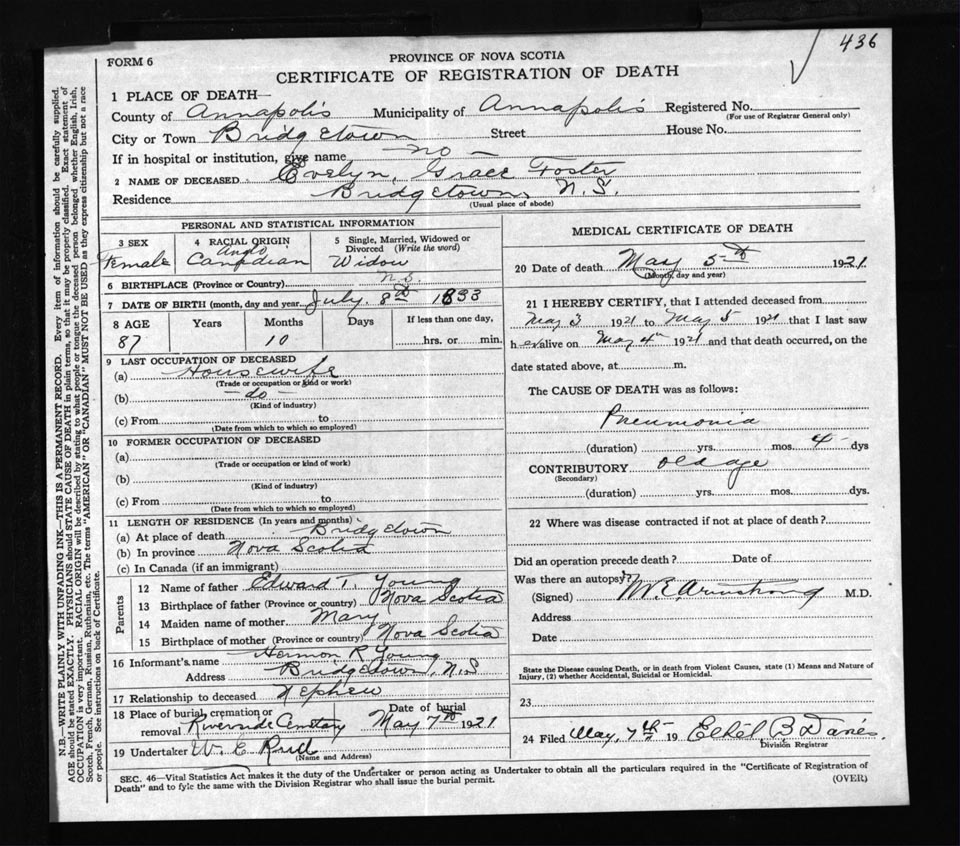 436
FORM 6
PROVINCE OF NOVA SCOTIA
CERTIFICATE OF REGISTRATION OF DEATH
1 PLACE OF DEATH—
County of Annapolis Municipality of Annapolis Registered No.
(For use of Registrar General only)
City or Town Bridgetown Street House No.
If in hospital or institution, give name — no —
2 NAME OF DECEASED Evelyn Grace Foster
Residence Bridgetown, N.S.
(Usual place of abode)
PERSONAL AND STATISTICAL INFORMATION
3 SEX Female
4 RACIAL ORIGIN Anglo Canadian
5 Single, Married, Widowed or Divorced (Write the word) Widow
6 BIRTHPLACE (Province or Country) N.S.
7 DATE OF BIRTH (month, day and year) July 8th 1833
8 AGE Years Months Days If less than one day,
87 10 hrs. or min.
9 LAST OCCUPATION OF DECEASED
(a) Housewife
(Trade or occupation or kind or work)
(b) — do —
(Kind of industry)
(c) From to
(Date from which to which so employed)
10 FORMER OCCUPATION OF DECEASED
(a)
(Trade or occupation or kind of work)
(b)
(Kind of industry)
(c) From to
(Date from which to which so employed)
11 LENGTH OF RESIDENCE (In years and months)
(a) At place of death Bridgetown
(b) In province Nova Scotia
(c) In Canada (if an immigrant)
Parents
12 Name of father Edward T. Young
13 Birthplace of father (Province or country) Nova Scotia
14 Maiden name of mother Mary
15 Birthplace of mother (Province or country) Nova Scotia
16 Informant's name Hermon R Young
Address Bridgetown, N.S
17 Relationship to deceased Nephew
18 Place of burial, cremation or removal Riverside Cemetary
Date of burial May 7th 1921
19 Undertaker W. E. Reed
(Name and Address)
MEDICAL CERTIFICATE OF DEATH
20 Date of death May 5th 1921
(Month, day and year)
21 I HEREBY CERTIFY, that I attended deceased from
May 3 1921 to May 5 1921 that I last saw
h er alive on May 4th 1921 and that death occurred, on the
date stated above, at m.
The CAUSE OF DEATH was as follows:
Pneumonia
(duration) yrs. mos. 4 dys
CONTRIBUTORY old age
(Secondary)
(duration) yrs. mos. dys.
22 Where was disease contracted if not at place of death?
Did an operation precede death? Date of
Was there an autopsy?
(Signed) M E Armstrong M.D.
Address
Date
State the Disease causing Death, or in death from Violent Causes, state (1) Means and Nature of
Injury, (2) whether Accidental, Suicidal or Homicidal.
23
24 Filed May, 7th 19 Ethel B Davies.
Division Registrar
SEC. 46—Vital Statistics Act makes it the duty of the Undertaker or person acting as Undertaker to obtain all the particulars required in the "Certificate of Registration of
Death" and to fyle the same with the Division Registrar who shall issue the burial permit.
(OVER)
N.B. WRITE PLAINLY WITH UNFADING INK—THIS IS A PERMANENT RECORD. Every item of information should be carefully supplied.
AGE should be stated EXACTLY. PHYSICIANS should STATE CAUSE OF DEATH in plain terms, so that it may be properly classified. Exact statement of
OCCUPATION is very important. RACIAL ORIGIN will be described by stating to what people or tongue the deceased person belonged whether English, Irish,
Scotch, French, German, Russian, Ruthenian, etc. The terms "AMERICAN" OR "CANADIAN" MUST NOT BE USED as they express citizenship but not a race
or people. See instructions on back of Certificate.